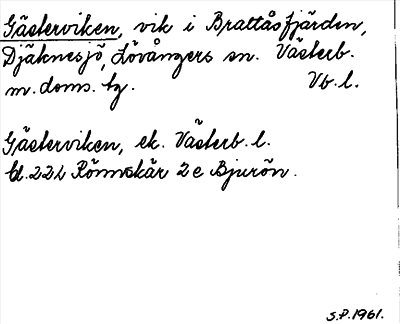 Gästerviken, vik i Brattåsfjärden,
Djäknesjö, Lövångers sn. Västerb.
m. doms. tg. Vb. l.
Gästerviken, ek. Västerb. l.
bl. 22 L Rönnskär 2 e Bjurön.
S.P. 1961.